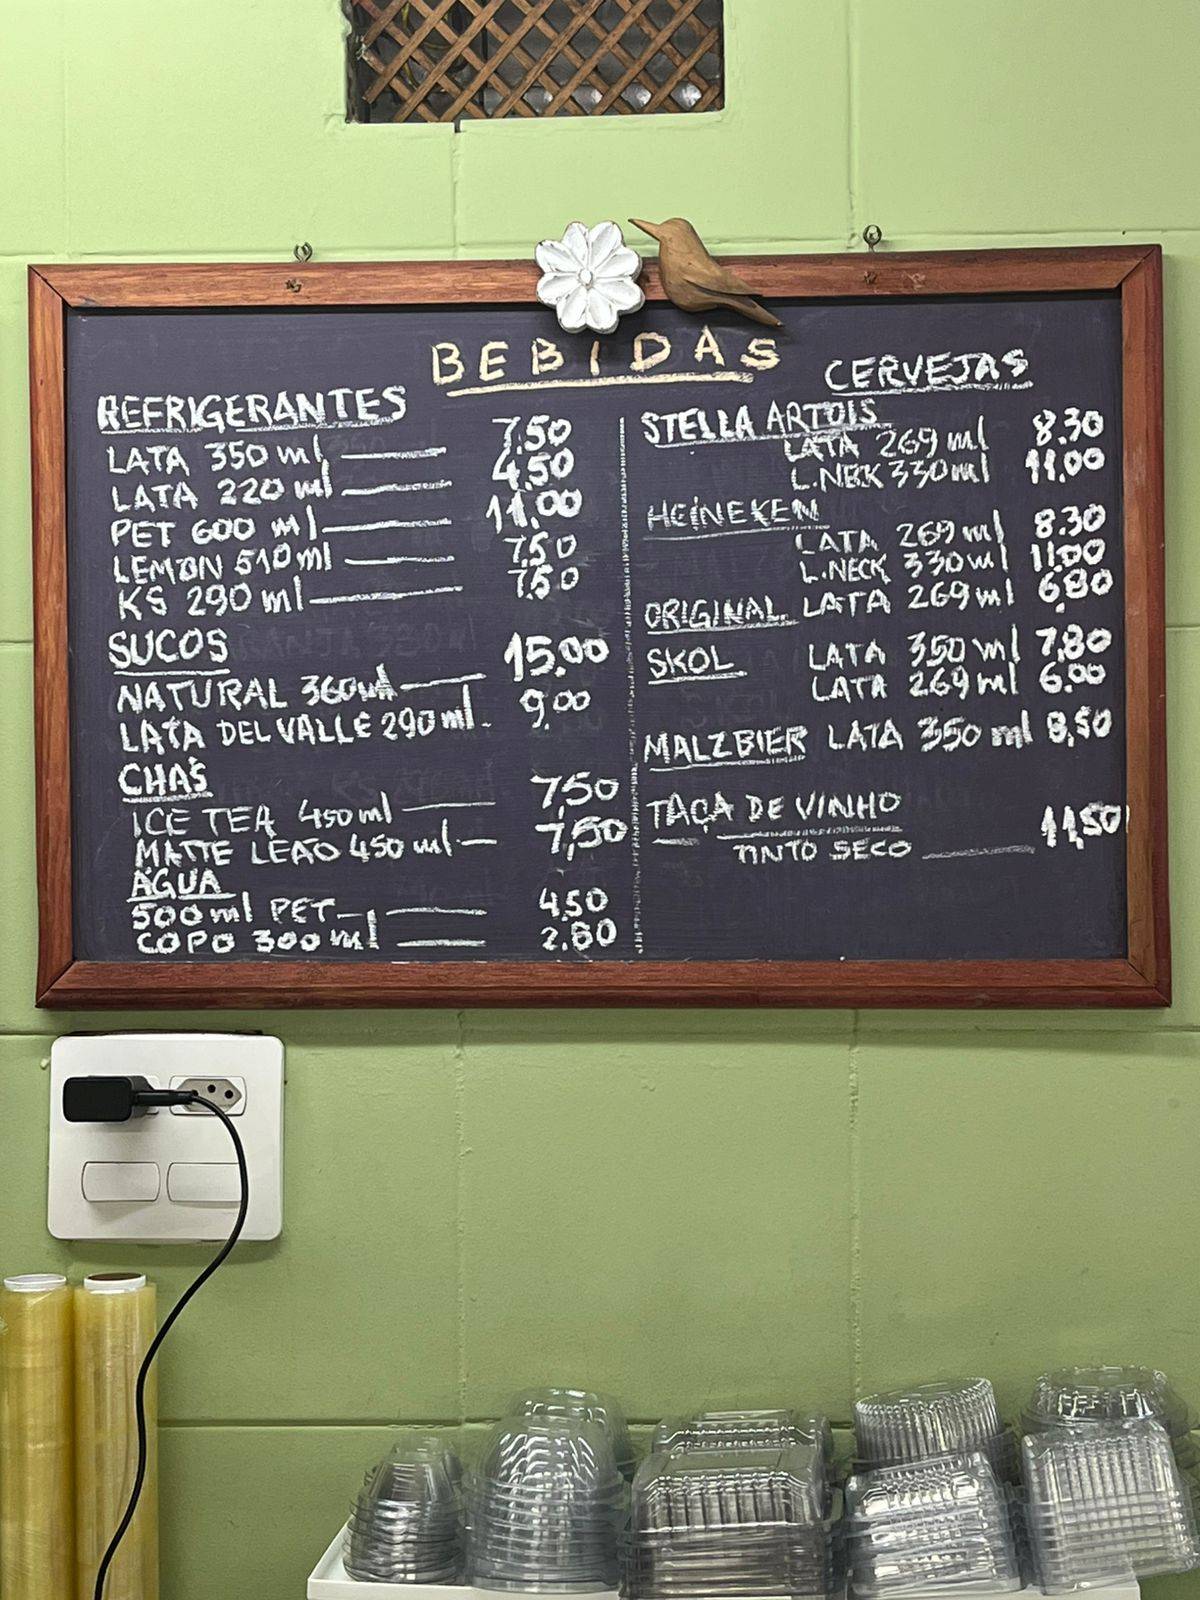 BEBIDAS
REFRIGERANTES
LATA 350 ml 7,50
LATA 220 ml 4,50
PET 600 ml 11,00
LEMON 510 ml 7,50
KS 290 ml 7,50
SUCOS
NATURAL 360 ml 15,00
LATA DEL VALLE 290 ml. 9,00
CHÁS
ICE TEA 450 ml 7,50
MATTE LEAO 450 ml 7,50
ÁGUA
500 ml PET 4,50
COPO 300 ml 2.80
CERVEJAS
STELLA ARTOIS
LATA 269 ml 8.30
L.NECK 330 ml 11.00
HEINEKEN
LATA 269 ml 8.30
L.NECK 330 ml 11.00
ORIGINAL LATA 269 ml 6,80
SKOL LATA 350 ml 7,80
LATA 269 ml 6.00
MALZBIER LATA 350 ml 8,50
TAÇA DE VINHO
TINTO SECO 11,50